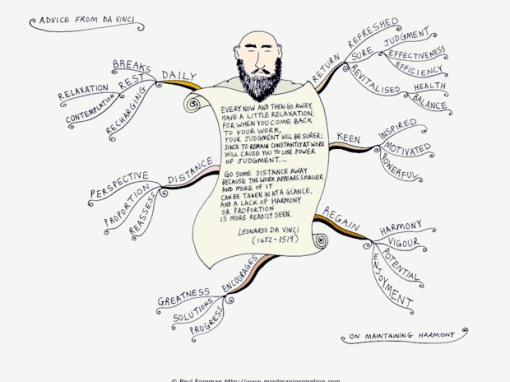 ADVICE FROM DA VINCI
DAILY
BREAKS
REST
RELAXATION
CONTEMPLATION
RECHARGING
DISTANCE
PERSPECTIVE
PROPORTION
REASSESS
ENCOURAGES
GREATNESS
SOLUTIONS
PROGRESS
EVERY NOW AND THEN GO AWAY,
HAVE A LITTLE RELAXATION,
FOR WHEN YOU COME BACK
TO YOUR WORK,
YOUR JUDGMENT WILL BE SURER;
SINCE TO REMAIN CONSTANTLY AT WORK
WILL CAUSE YOU TO LOSE POWER
OF JUDGMENT....
GO SOME DISTANCE AWAY
BECAUSE THE WORK APPEARS SMALLER
AND MORE OF IT
CAN BE TAKEN IN AT A GLANCE,
AND A LACK OF HARMONY
OR PROPORTION
IS MORE READILY SEEN.
LEONARDO DA VINCI
(1452-1519)
RETURN
REFRESHED
SURE
JUDGMENT
EFFECTIVENESS
EFFICIENCY
REVITALISED
HEALTH
BALANCE
KEEN
INSPIRED
MOTIVATED
POWERFUL
REGAIN
HARMONY
VIGOUR
POTENTIAL
ENJOYMENT
ON MAINTAINING HARMONY
© Paul Foreman http://www.mindmapinspiration.com